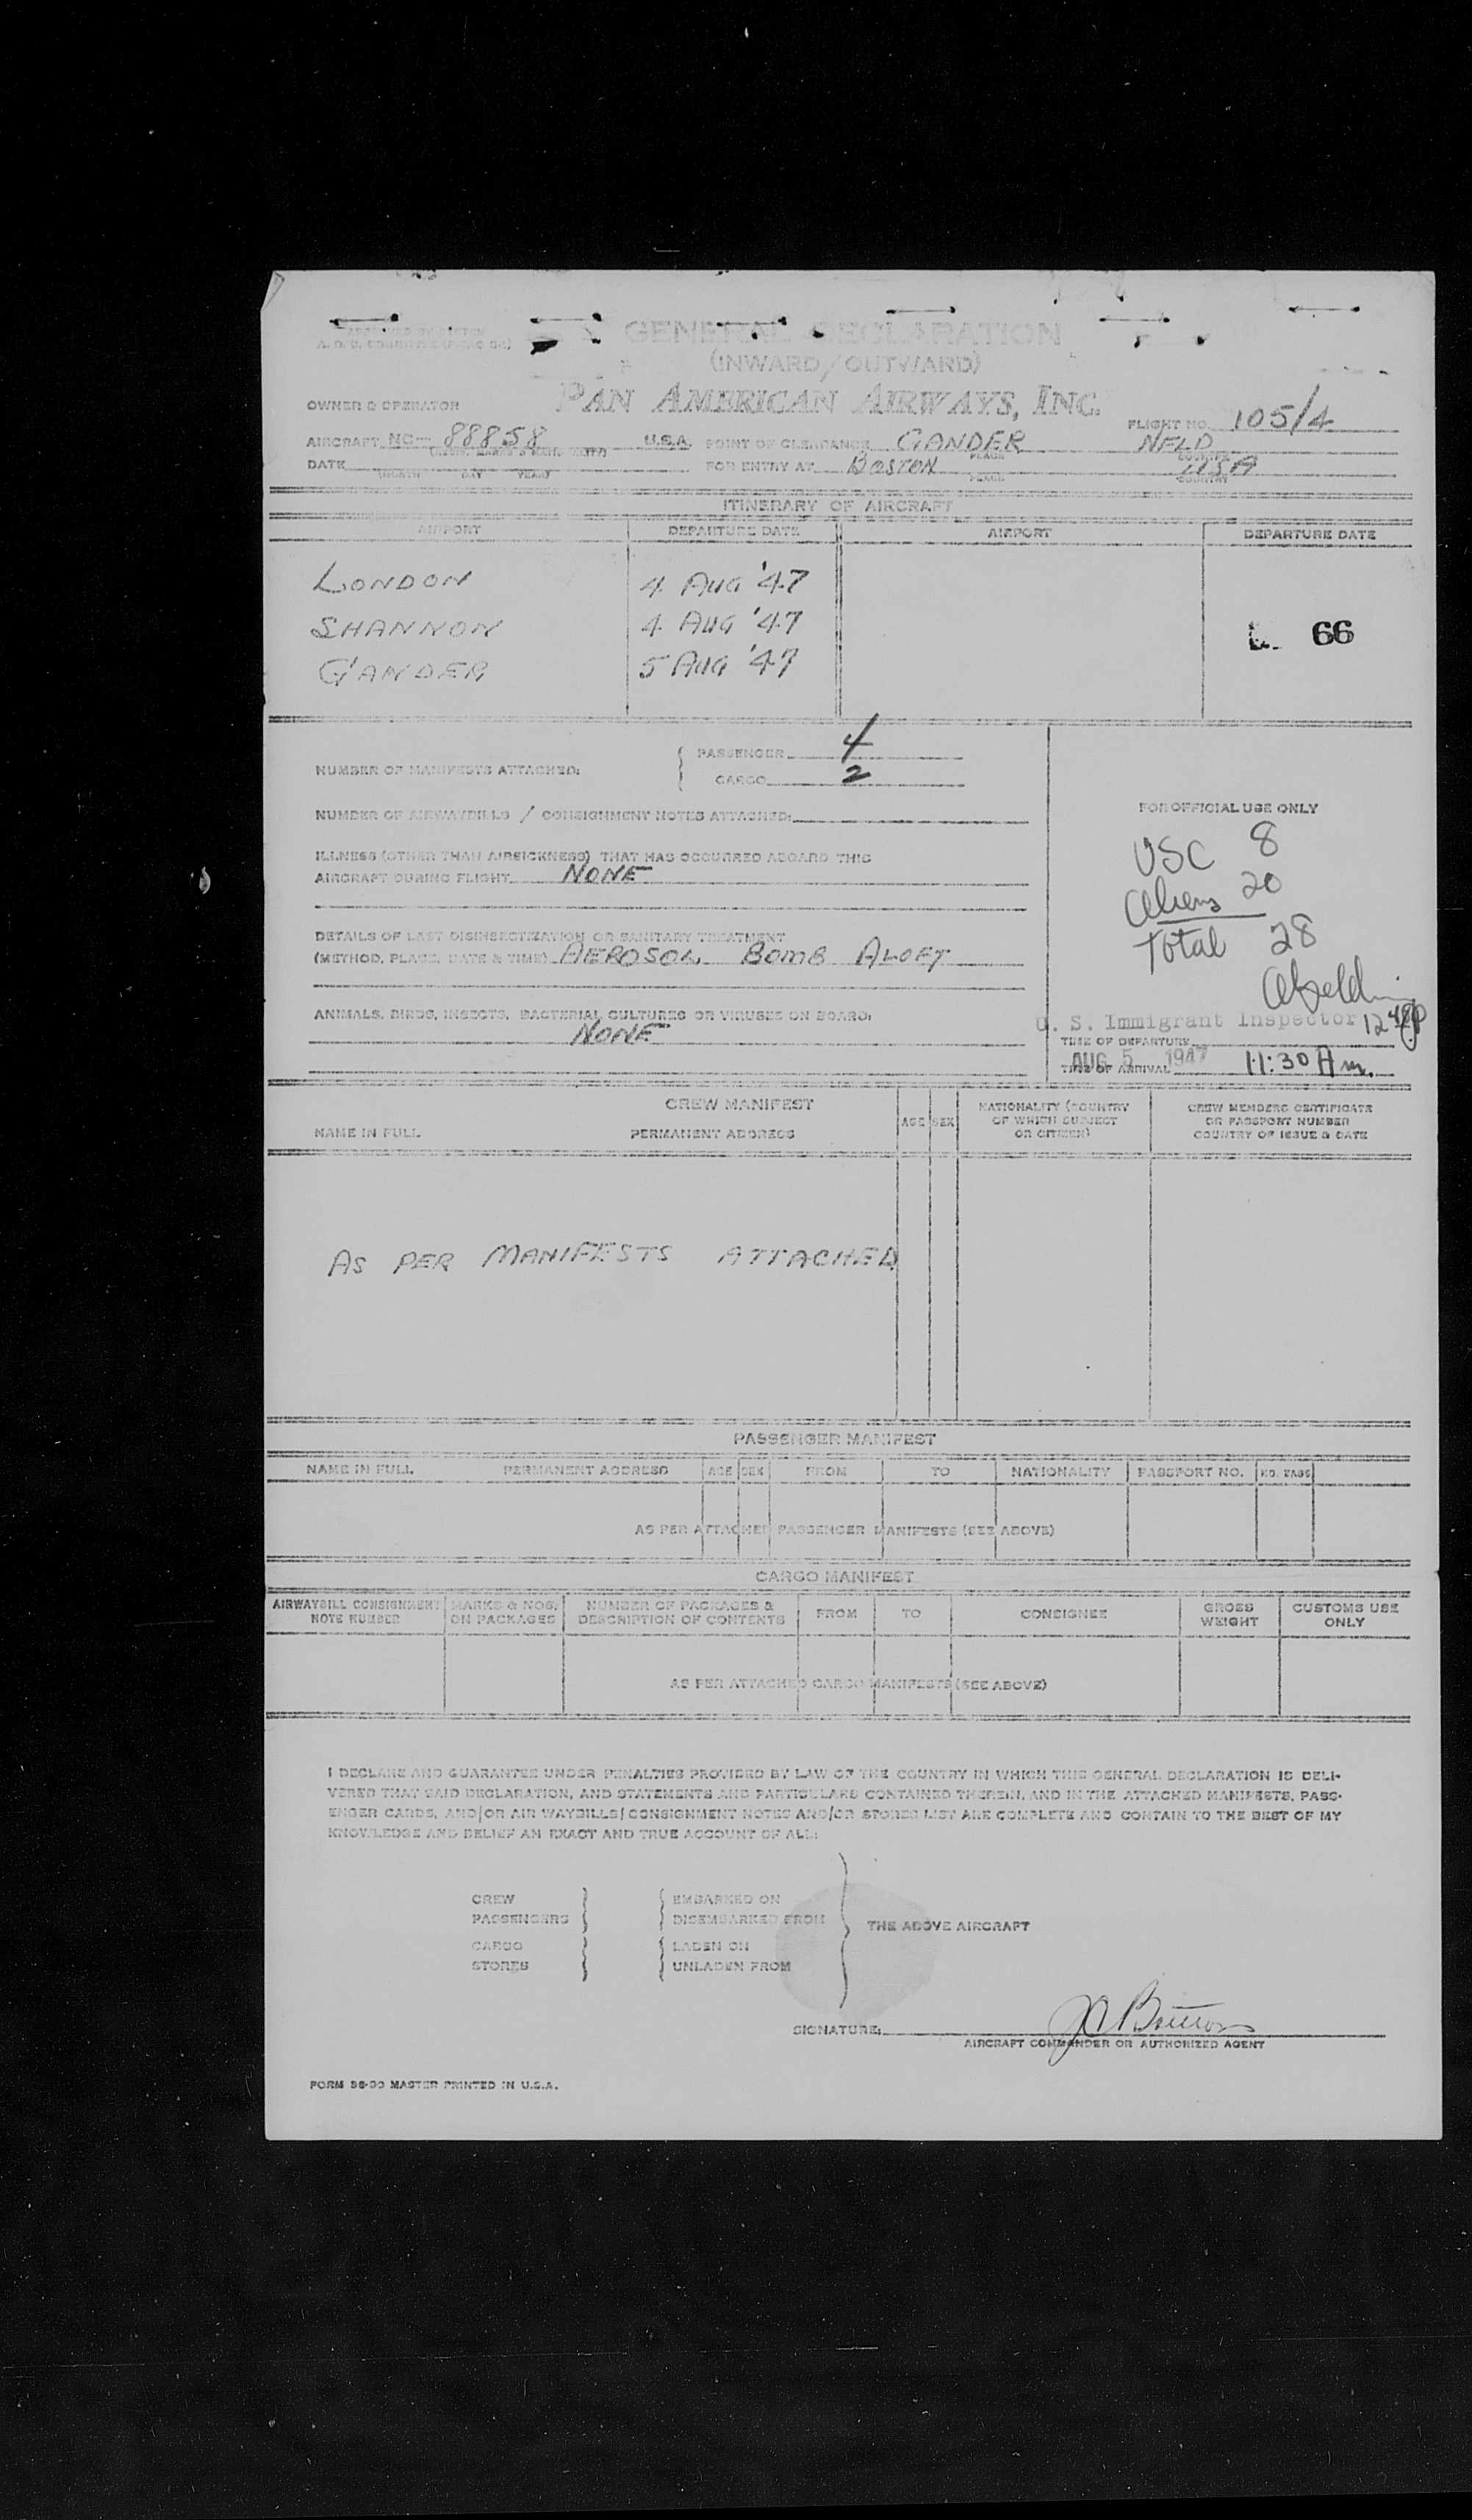 GENERAL DECLARATION
(INWARD/OUTWARD)
OWNER & OPERATOR PAN AMERICAN AIRWAYS, INC. FLIGHT NO. 105/4
AIRCRAFT NC- 88858 U.S.A. POINT OF CLEARANCE GANDER NFLD
PLACE COUNTRY
DATE FOR ENTRY AT BOSTON USA
(MONTH DAY YEAR) PLACE COUNTRY
ITINERARY OF AIRCRAFT
AIRPORT DEPARTURE DATE AIRPORT DEPARTURE DATE
LONDON 4 AUG '47
SHANNON 4 AUG '47 66
GANDER 5 AUG '47
NUMBER OF MANIFESTS ATTACHED: PASSENGER 4
CARGO 2
FOR OFFICIAL USE ONLY
NUMBER OF AIRWAYBILLS / CONSIGNMENT NOTES ATTACHED:
USC 8
Aliens 20
Total 28
ILLNESS (OTHER THAN AIRSICKNESS) THAT HAS OCCURRED ABOARD THIS
AIRCRAFT DURING FLIGHT NONE
DETAILS OF LAST DISINSECTIZATION OR SANITARY TREATMENT
(METHOD, PLACE, DATE & TIME) AEROSOL BOMB ALOFT
ANIMALS, BIRDS, INSECTS, BACTERIAL CULTURES OR VIRUSES ON BOARD:
NONE
U. S. Immigrant Inspector
TIME OF DEPARTURE
AUG 5 1947 11:30 Am.
TIME OF ARRIVAL
CREW MANIFEST
NAME IN FULL PERMANENT ADDRESS AGE SEX NATIONALITY (COUNTRY OF WHICH SUBJECT OR CITIZEN) CREW MEMBERS CERTIFICATE OR PASSPORT NUMBER COUNTRY OF ISSUE & DATE
AS PER MANIFESTS ATTACHED
PASSENGER MANIFEST
NAME IN FULL PERMANENT ADDRESS AGE SEX FROM TO NATIONALITY PASSPORT NO. NO. BAGS
AS PER ATTACHED PASSENGER MANIFESTS (SEE ABOVE)
CARGO MANIFEST
AIRWAYBILL CONSIGNMENT NOTE NUMBER MARKS & NOS. ON PACKAGES NUMBER OF PACKAGES & DESCRIPTION OF CONTENTS FROM TO CONSIGNEE GROSS WEIGHT CUSTOMS USE ONLY
AS PER ATTACHED CARGO MANIFESTS (SEE ABOVE)
I DECLARE AND GUARANTEE UNDER PENALTIES PROVIDED BY LAW OF THE COUNTRY IN WHICH THIS GENERAL DECLARATION IS DELI-
VERED THAT SAID DECLARATION, AND STATEMENTS AND PARTICULARS CONTAINED THEREIN, AND IN THE ATTACHED MANIFESTS, PASS-
ENGER CARDS, AND/OR AIR WAYBILLS/CONSIGNMENT NOTES AND/OR STORES LIST ARE COMPLETE AND CONTAIN TO THE BEST OF MY
KNOWLEDGE AND BELIEF AN EXACT AND TRUE ACCOUNT OF ALL:
CREW EMBARKED ON
PASSENGERS DISEMBARKED FROM
THE ABOVE AIRCRAFT
CARGO LADEN ON
STORES UNLADEN FROM
SIGNATURE:
AIRCRAFT COMMANDER OR AUTHORIZED AGENT
FORM 36-90 MASTER PRINTED IN U.S.A.